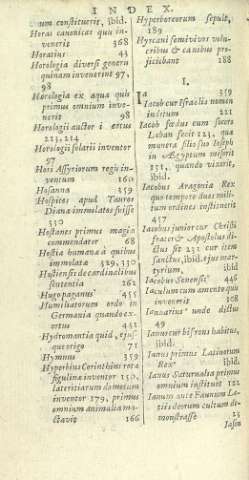 INDEX.
um constituerit, ibid.
Horas canonicas quis in-
venerit 368
Horatius 43
Horologia diversi genera
quinam invenerint 97,
98
Horologia ex aqua quis
primus omnium inve-
nerit 98
Horologii auctor i ercus
223, 224
Horologii solarii inventor
97
Hori Assyriorum regis in-
ventum 160
Hosanna 359
Hospites apud Tauros
Dianæ immolatos fuisse
330
Hostanes primus magia
commendater 68
Hostia humana à quibus
immolatæ 329, 330
Hostiensis de cardinalibus
sententia 262
Hugo paganus 455
Humiliatorum ordo in
Germania quando ex-
ortus 451
Hydromantia quid, ejus-
que origo 71
Hymnus 359
Hyperbius Corinthius rota
figulinæ inventor 150,
lateritiarum domorum
inventor 179, primus
omnium animalia ma-
ctavit 166
Hyperboreorum sepult,
189
Hyrcani semivivos volu-
cribus & canibus pro-
jiciebant 188
I.
Ia 359
Iacob cur Israelis nomen
inditum 221
Iacob fœdus cum socero
Laban fecit 223, qua
munera filio suo Ioseph
in Ægyptum misserit
231, quando vixerit,
ibid.
Iacobus Aragonia Rex
quo tempore duas mili-
tum ordines instituerit
457
Iacobus junior cur Christi
frater & Apostolus di-
ctus sit 232 cur item
sanctus, ibid. ejus mar-
tyrium, ibid
Iacobus Senensis 446
Iaculum cum amento quis
invenerit 108
Ianuarius unde dictus
49
Ianus cur bifrons habitus,
ibid.
Ianus primus Latinorum
Rex ibid.
Ianus Saturnalia primus
omnium instituit 122
Ianum ante Faunum La-
tiis deorum cultum de-
monstrasse 23
Iason